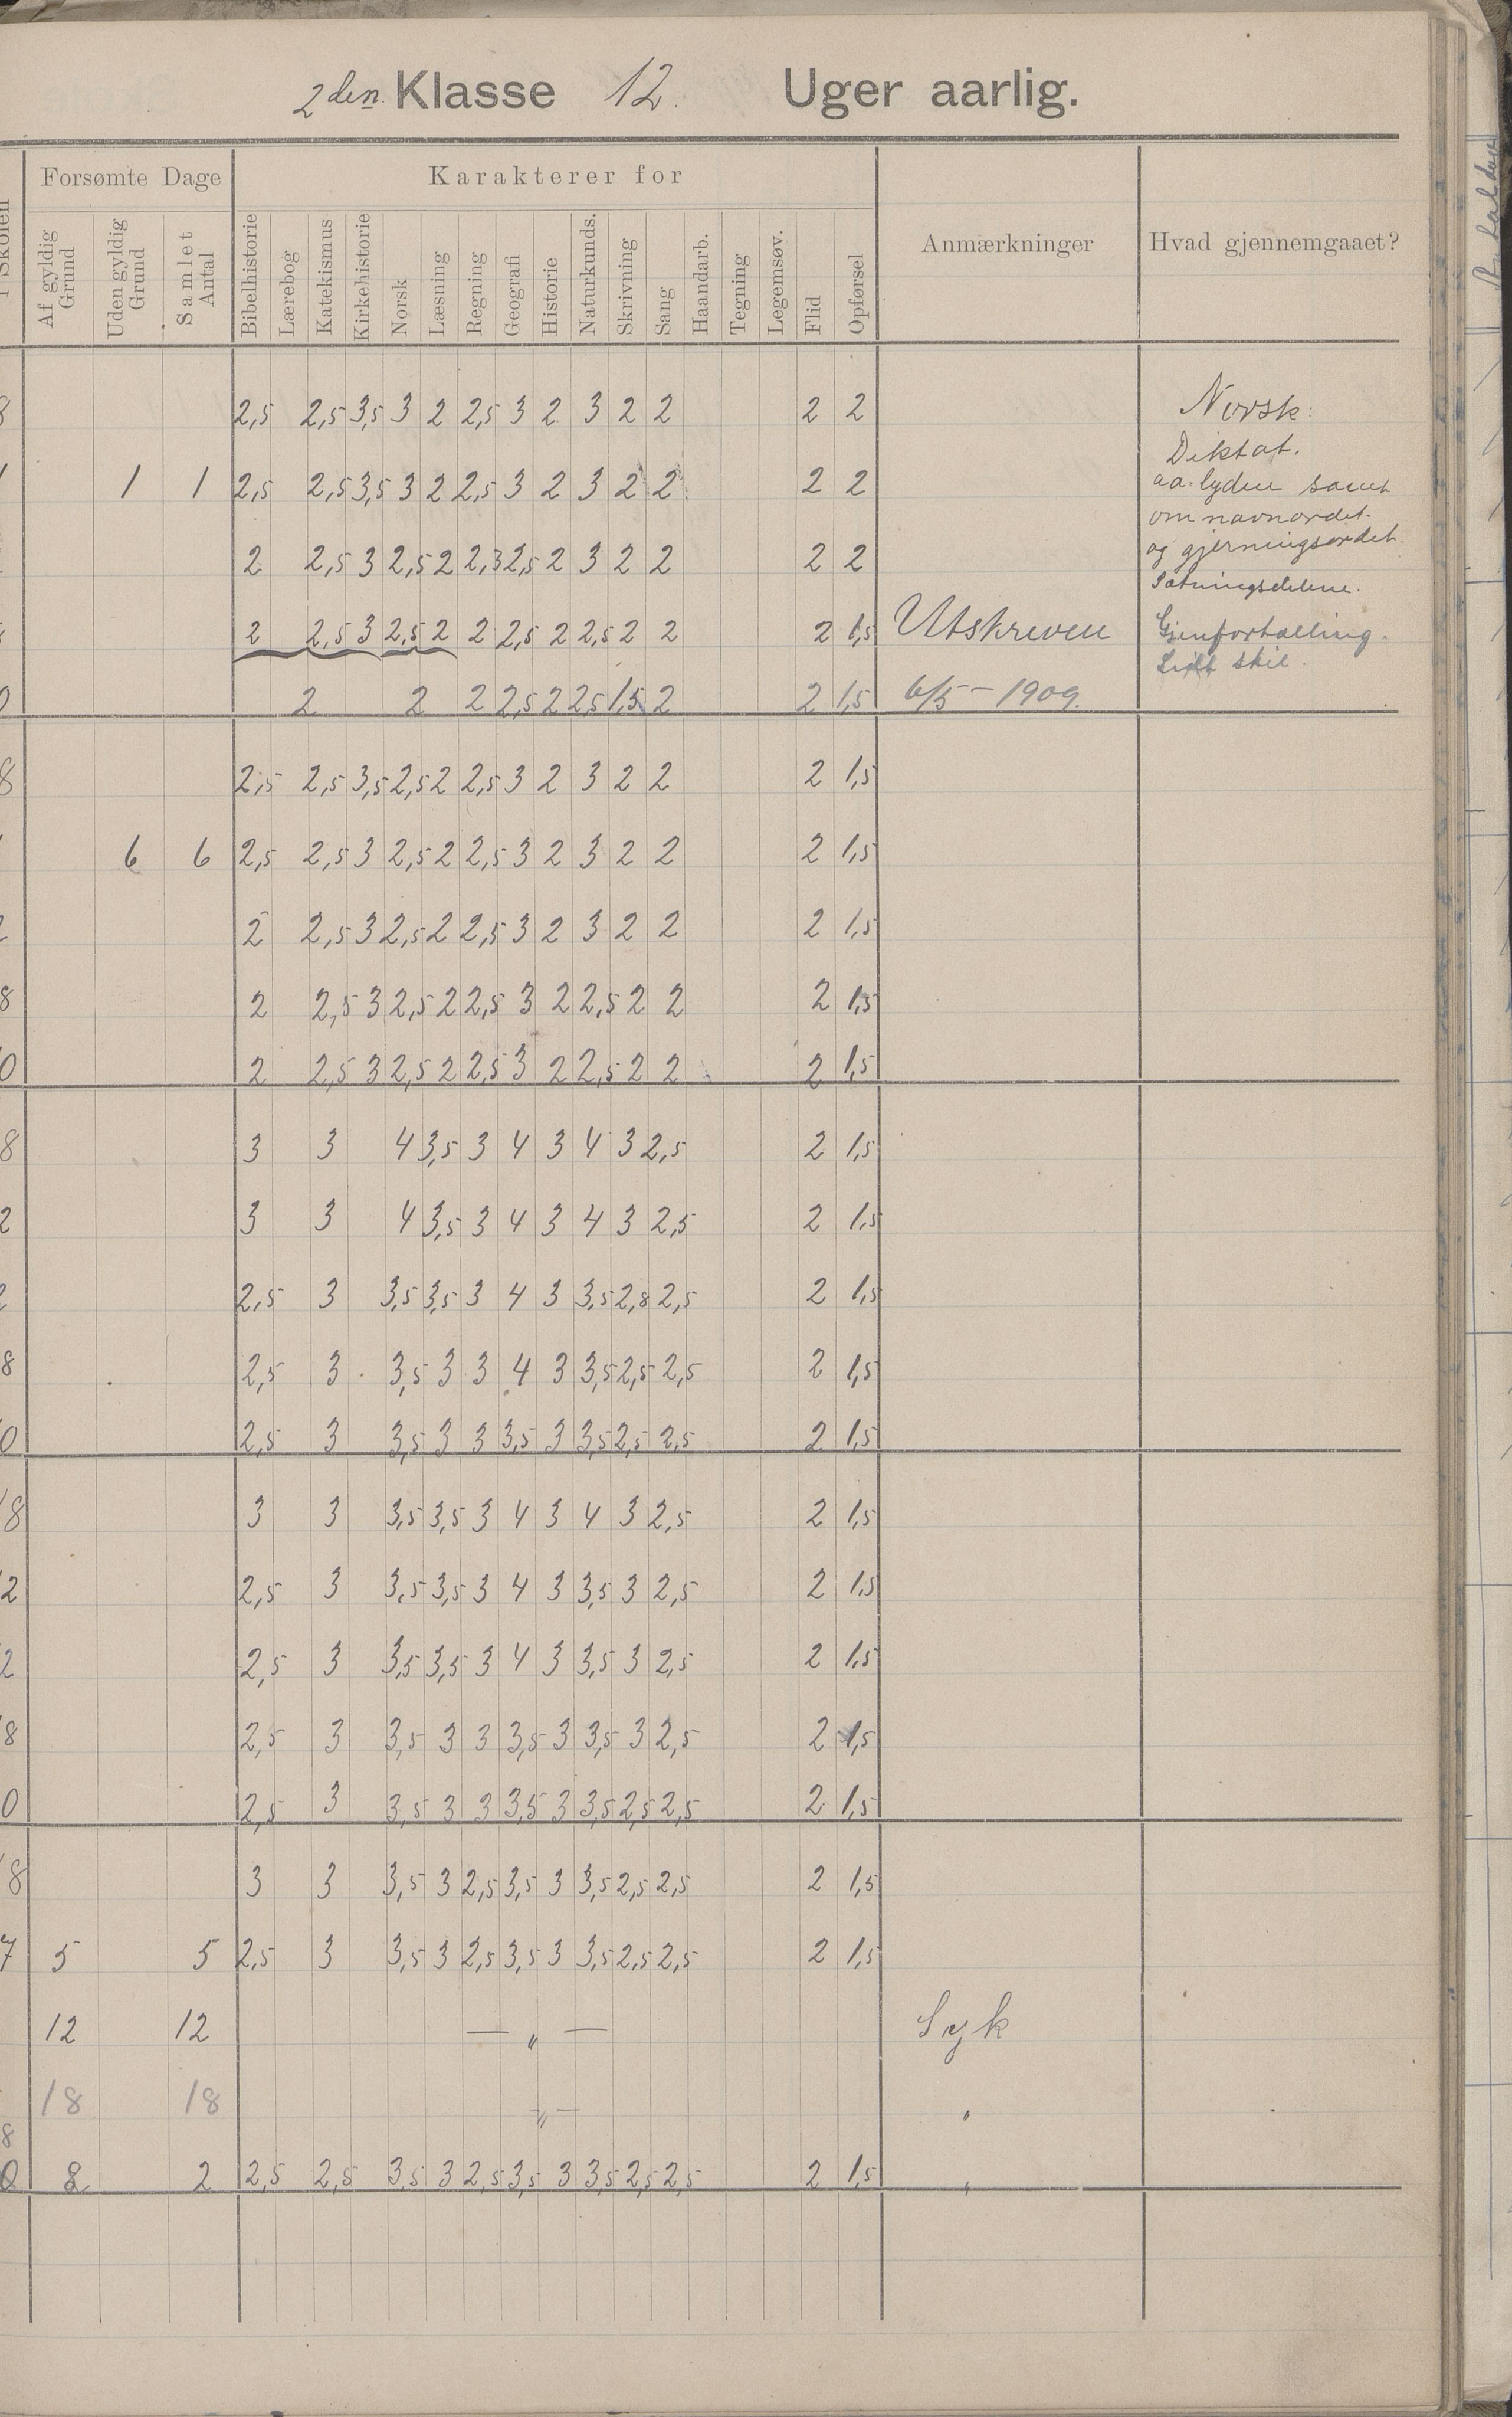 2den Klasse 12. Uger aarlig.
Forsømte Dage Karakterer for Anmærkninger Hvad gjennemgaaet?
i Skolen Af gyldig Grund Uden gyldig Grund Samlet Antal Bibelhistorie Lærebog Katekismus Kirkehistorie Norsk Læsning Regning Geografi Historie Naturkunds. Skrivning Sang Haandarb. Tegning Legemsøv. Flid Opførsel
8 2,5 2,5 3,5 3 2 2,5 3 2 3 2 2 2 2 Norsk:
Diktat.
1 1 2,5 2,5 3,5 3 2 2,5 3 2 3 2 2 2 2 aa-lyden samt
om navnordet.
2 2,5 3 2,5 2 2,3 2,5 2 3 2 2 2 2 og gjerningsordet
Sætningsdelene.
2 2,5 3 2,5 2 2 2,5 2 2,5 2 2 2 1,5 Utskreven Gjenfortælling.
Lidt stil.
0 2 2 2 2,5 2 2,5 1,5 2 2 1,5 6/5 - 1909.
8 2,5 2,5 3,5 2,5 2 2,5 3 2 3 2 2 2 1,5
6 6 2,5 2,5 3 2,5 2 2,5 3 2 3 2 2 2 1,5
2 2 2,5 3 2,5 2 2,5 3 2 3 2 2 2 1,5
8 2 2,5 3 2,5 2 2,5 3 2 2,5 2 2 2 1,5
0 2 2,5 3 2,5 2 2,5 3 2 2,5 2 2 2 1,5
8 3 3 4 3,5 3 4 3 4 3 2,5 2 1,5
2 3 3 4 3,5 3 4 3 4 3 2,5 2 1,5
2 2,5 3 3,5 3,5 3 4 3 3,5 2,8 2,5 2 1,5
8 2,5 3 3,5 3 3 4 3 3,5 2,5 2,5 2 1,5
0 2,5 3 3,5 3 3 3,5 3 3,5 2,5 2,5 2 1,5
8 3 3 3,5 3,5 3 4 3 4 3 2,5 2 1,5
2 2,5 3 3,5 3,5 3 4 3 3,5 3 2,5 2 1,5
2 2,5 3 3,5 3,5 3 4 3 3,5 3 2,5 2 1,5
8 2,5 3 3,5 3 3 3,5 3 3,5 3 2,5 2 1,5
0 2,5 3 3,5 3 3 3,5 3 3,5 2,5 2,5 2 1,5
8 3 3 3,5 3 2,5 3,5 3 3,5 2,5 2,5 2 1,5
7 5 5 2,5 3 3,5 3 2,5 3,5 3 3,5 2,5 2,5 2 1,5
12 12 — „ — Syk
18 18 — „ — "
8
0 2 2,5 2,5 3,5 3 2,5 3,5 3 3,5 2,5 2,5 2 1,5 "